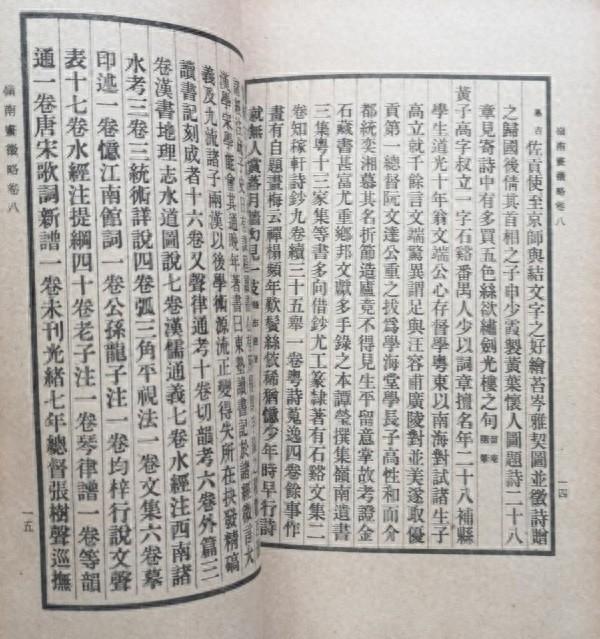 嶺南畫徵略卷八
一四
佐貢使至京師與結文字之好繪苔岑雅契圖並徵詩贈
之歸國後倩其相之子申少霞製黃葉懷人圖題詩二十八
章見寄詩中有多買五色絲欲繡劍光樓之句
黃子高字叔立一字石谿番禺人少以詞章擅名年二十八補縣
學生道光十年翁文端公心存督學粵東以南海對試諸生子
高立就千餘言文端驚異謂足與汪容甫廣陵對並美遂取優
貢第一總督阮文達公重之拔爲學海堂學長子高性和而介
都統奕湘慕其名折節造廬竟不得見生平留意掌故考證金
石藏書甚富尤重鄉邦文獻多手錄之本譚瑩撰集嶺南遺書
三集粵十三家集等書多向借鈔尤工篆隸著有石谿文集二
卷知稼軒詩鈔九卷續三十五舉一卷粵詩蒐逸四卷餘事作
畫有自題畫梅云禪榻頻年歎鬢絲依稀猶憶少年時早行詩
就無人賞落月牆初見一枝
漢學宋學能會其通晚年著書曰東塾讀書記微言大
義及九流諸子兩漢以後學術源流正變得失所在抉發精確
讀書記刻成者十六卷又聲律通考十卷切韻考六卷外篇三
卷漢書地理志水道圖說七卷漢儒通義七卷水經注西南諸
水考三卷三統術詳說四卷弧三角平視法一卷文集六卷摹
印述一卷憶江南館詞一卷公孫龍子注一卷均梓行說文聲
表十七卷水經注提綱四十卷老子注一卷琴律譜一卷等韻
通一卷唐宋歌詞新譜一卷未刊光緒七年總督張樹聲巡撫
嶺南畫徵略卷八
一五